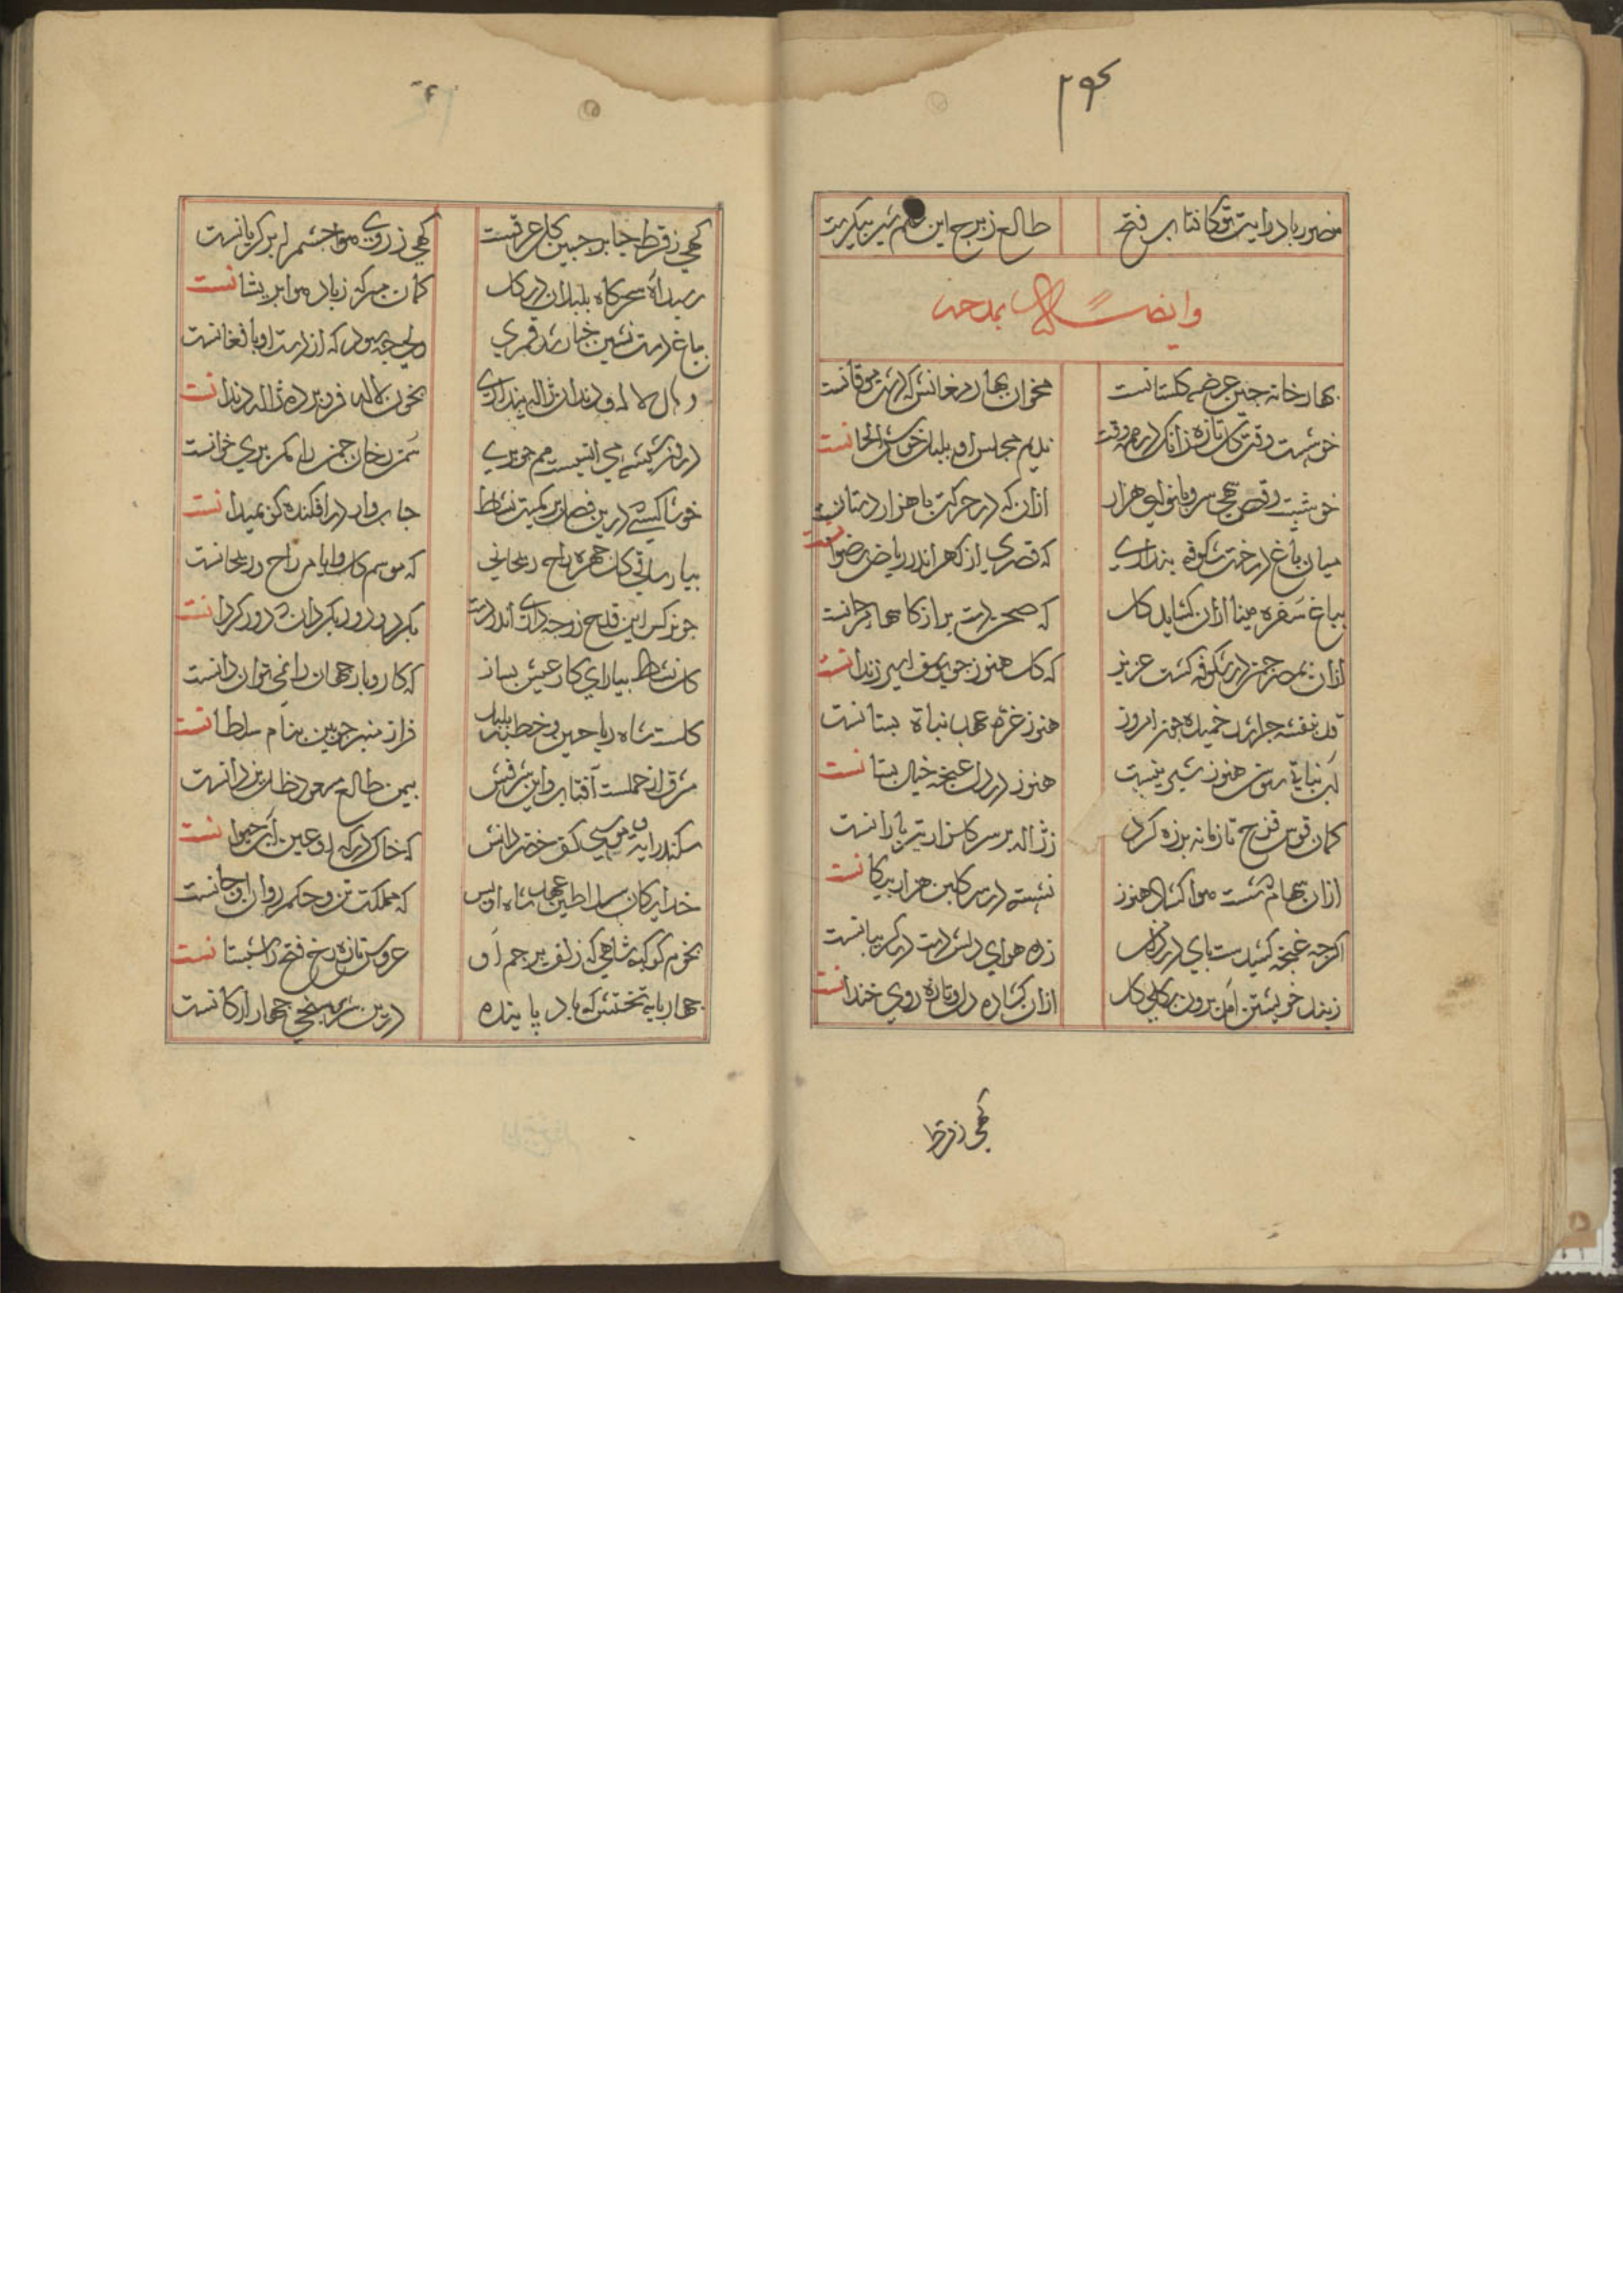 ۲۹۴
منصور باد رایت تو کافتاب فتح طالع ز برج این علم شیر پیکرست
وایضاً له بمدحه
بهار خانه چین عرصه گلستانست مخوان بهار مغانش که
خوشست وقت گل تازه زانک در همه وقت ندیم مجلس او بلبل خوش الحانست
خوشست رقص سهی سرو با نوای هزار ازان که در حرکت با هزار دستانست
میان باغ درخت شکوفه پنداری که قصری از گهر اندر ریاض رضوانست
بباغ سفره مینا ازان کشاید گل که صحن
ازان بمصر چمن در شکوفه گشت عزیز که گل هنوز چو یوسف اسیر زندانست
قد بنفشه چرا شد خمیده چون امروز هنوز غره عهد نباة بستانست
لب نباتی سوسن هنوز شیری نیست هنوز در دل غنچه خیال بستانست
کمان قوس قزح تا زمانه بر زه کرد ز ژاله بر سر گلزار تیر بارانست
ازان سهام که شست هوا کشاد هنوز نشسته در سر گلبن هزار پیکانست
اگرچه غنچه کشیدست پای در دامن ز ره هوای دلش دست در گریبانست
ز بند خویشتن آمد برون بکلی گل ازان کشاده دل و تازه روی خندانست
گهی ز فرط
گهی ز فرط حیا بر جبین گل عرقست گهی ز روی هوا چشم ابر گریانست
رسید آه سحرگاه بلبلان در گل گمان مبر که ز باد هوا پریشانست
بباغ دست نشین چنار شد قمری ولی چه سود که از دست او بافغانست
دهان لاله و دندان ژاله پنداری بخون لاله فرو برده ژاله دندانست
درون شیشه می انیست هم چو پری سمن رخان چمن را مگر پری خوانست
خوشا کسی که درین فصل بر کمیت نشاط حباب وار در افکنده گو بمیدانست
بیار ساقی گل چهره راح ریحانی که موسم گل و ایام راح و ریحانست
چو نرگس این قدح زر چه داری اندر دست بگرد و دور بگردان که دور گردانست
گل نشاط بیارای کار عیش بساز که کار و بار جهان را نمی توان دانست
گلست شاه ریاحین و خطبه بلبل فراز منبر چوبین بنام سلطانست
شرف از حملست آفتاب و این شرفش بیمن طالع مسعود ظل یزدانست
سکندر آیت موسی کف خضر دانش که خاک درگه او عین آب حیوانست
خدایگان سلاطین عهد شاه اویس که مملکت تن و حکم روان او جانست
نجوم کوکبه شاهی که زلف پرچم او عروس تازه رخ فتح را شبستانست
چهار پایه تختش که باد پاینده درین سرای سپنجی چهار ارکانست